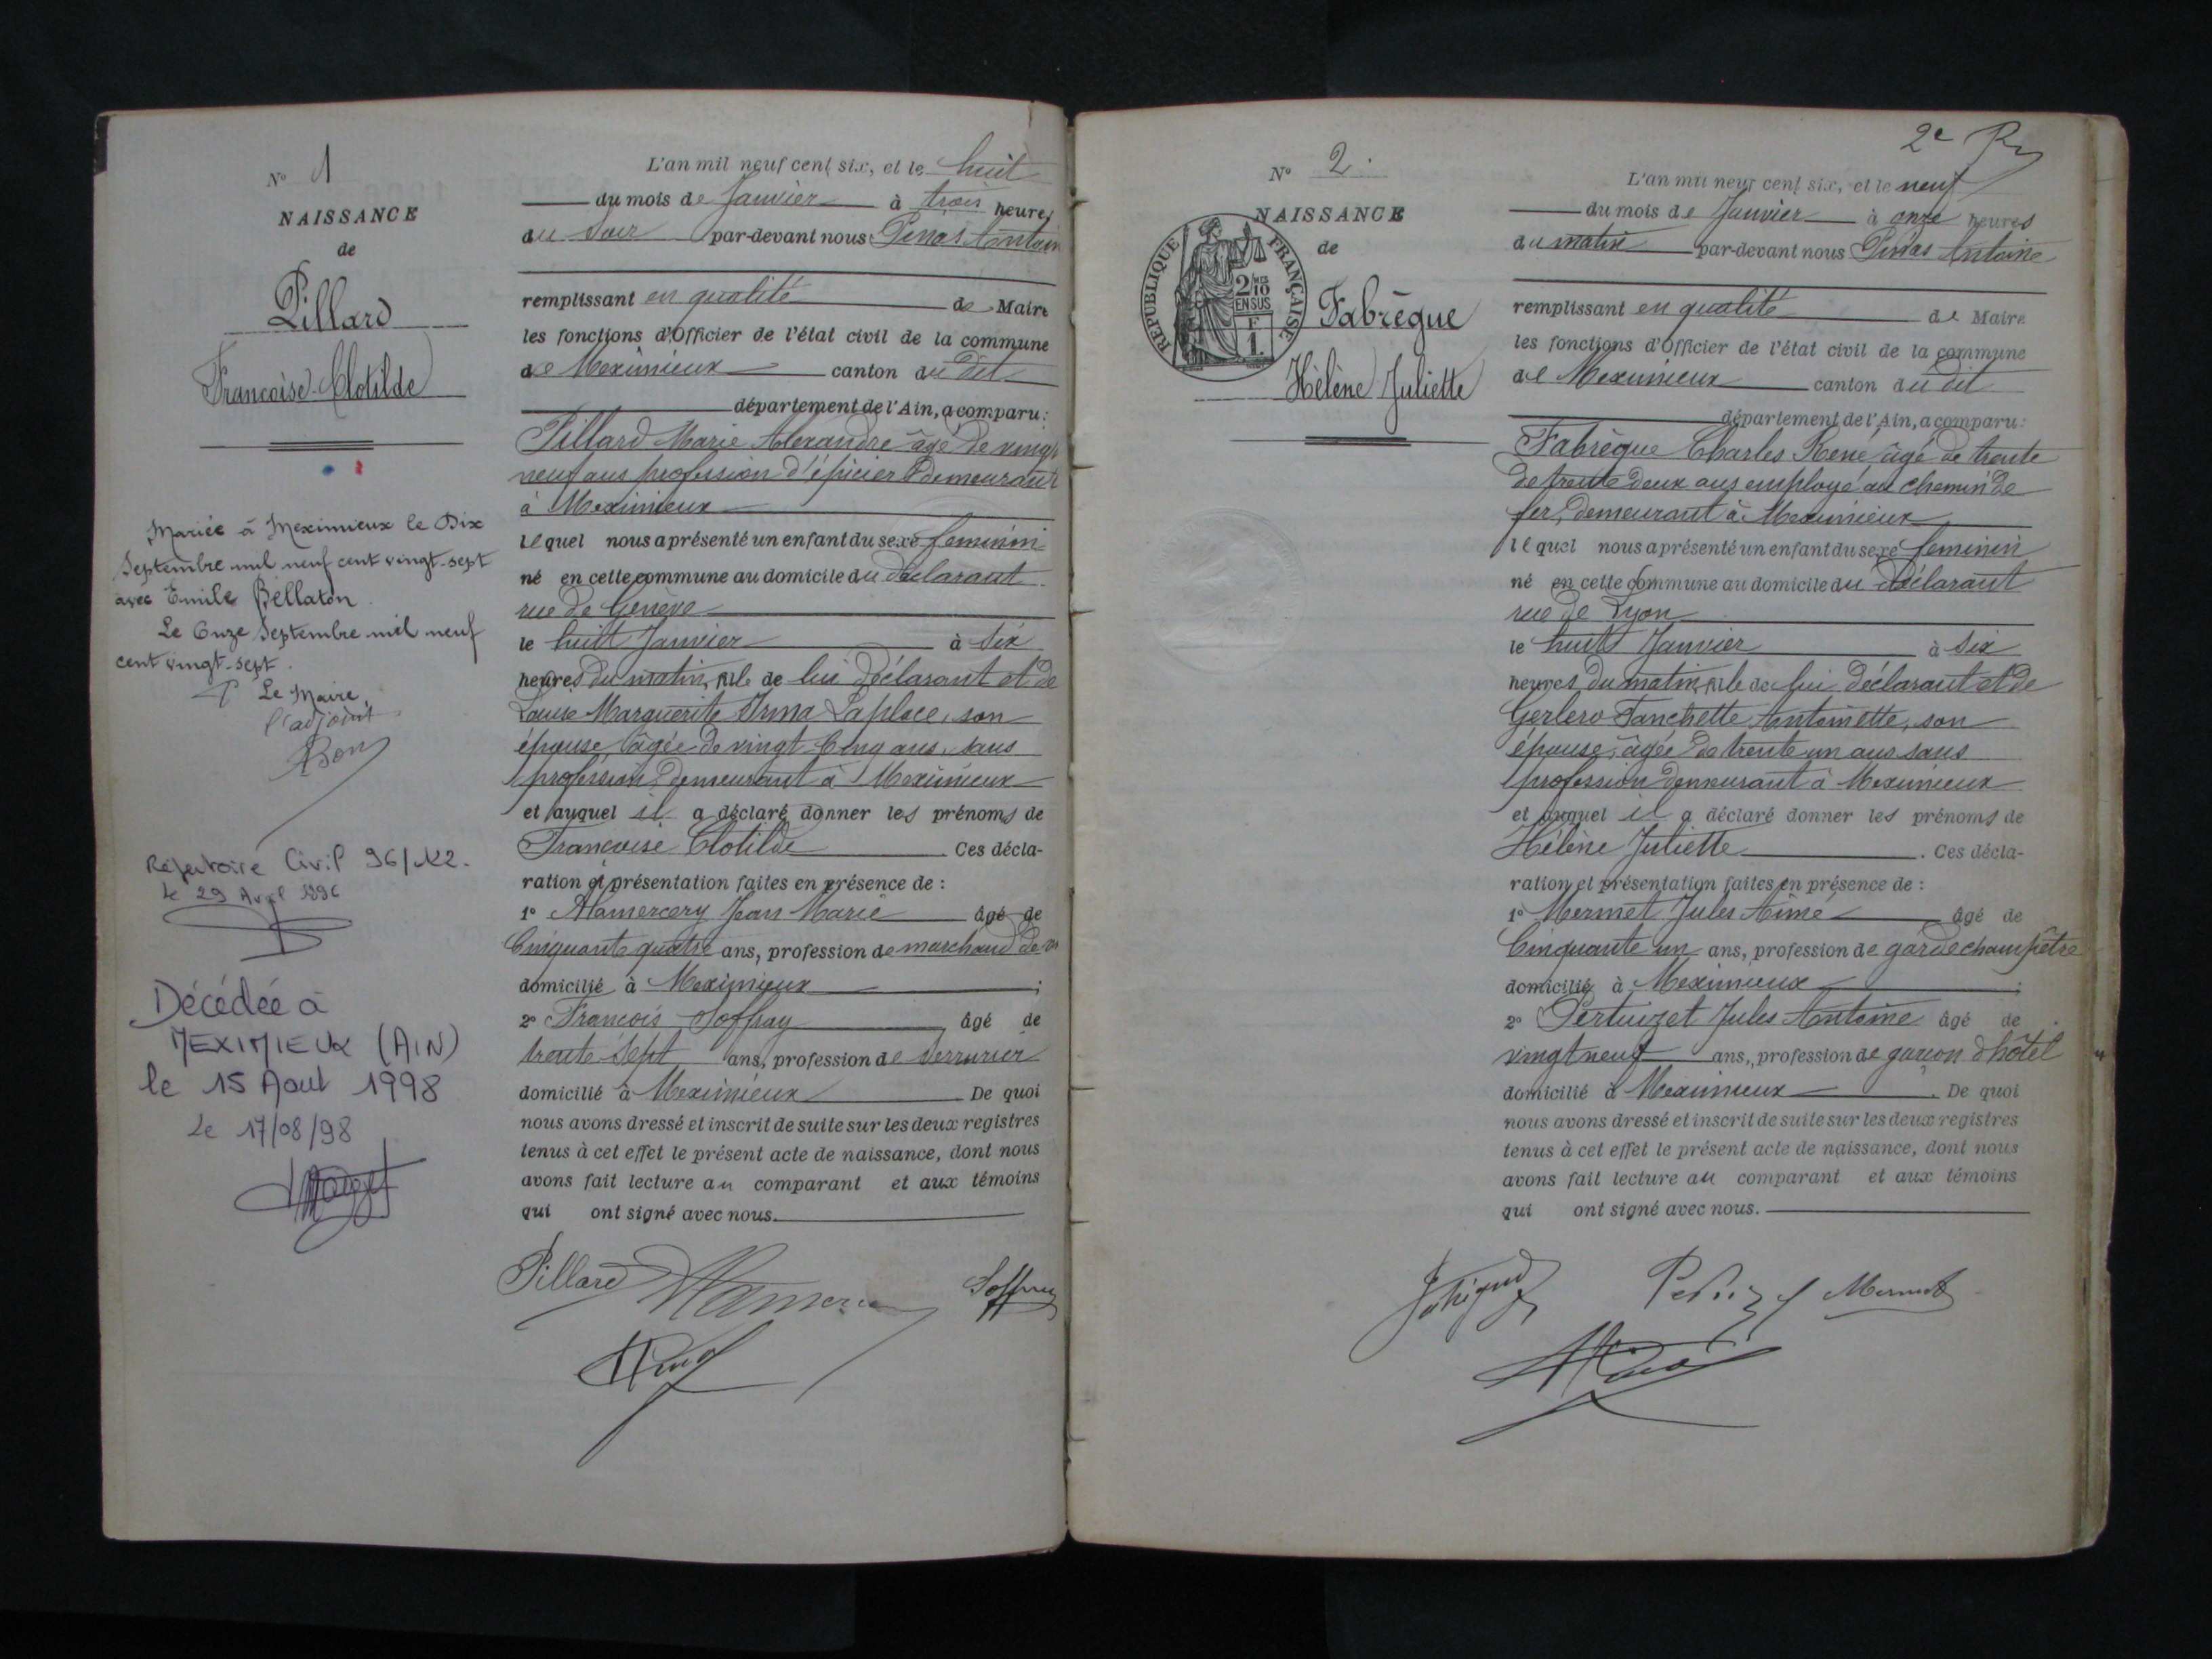 N° 1
NAISSANCE
de
Pillard
Francoise Clotilde
Mariée à Meximieux le Dix
Septembre mil neuf cent vingt-sept
avec Emile Bellaton
Le Onze Septembre mil neuf
cent vingt-sept.
Le Maire,
l'adjoint
Répertoire Civil 96/122.
le 29 Avril 1996
Décédée à
MEXIMIEUX (AIN)
le 15 Aout 1998
Le 17/08/98
L'an mil neuf cent six, et le huit
du mois de Janvier à trois heures
du soir par-devant nous Penas Antoin
remplissant en qualité de Maire
les fonctions d'Officier de l'état civil de la commune
de Meximieux canton du dit
département de l'Ain, a comparu:
Pillard Marie Alexandre âgé de vingt
neuf ans profession d'épicier demeurant
à Meximieux
lequel nous a présenté un enfant du sexe feminin
né en cette commune au domicile du déclarant
rue de Genève
le huit Janvier à six
heures du matin, fille de lui déclarant et de
Louise Marguerite Irma Laplace, son
épouse âgée de vingt-cinq ans, sans
profession demeurant à Meximieux
et auquel il a déclaré donner les prénoms de
Francoise Clotilde. Ces décla-
ration et présentation faites en présence de :
1° Alamercery Jean Marie âgé de
Cinquante quatre ans, profession de marchand de
domicilié à Meximieux ;
2° Francois Soffray âgé de
trente-sept ans, profession de serrurier
domicilié à Meximieux. De quoi
nous avons dressé et inscrit de suite sur les deux registres
tenus à cet effet le présent acte de naissance, dont nous
avons fait lecture au comparant et aux témoins
qui ont signé avec nous.
Pillard Soffray
2e
N° 2.
NAISSANCE
de
RÉPUBLIQUE FRANÇAISE
2/10
EN SUS
F
1.
Fabrègue
Hélène Juliette
L'an mil neuf cent six, et le neuf
du mois de Janvier à onze heures
du matin par-devant nous Penas Antoine
remplissant en qualité de Maire
les fonctions d'Officier de l'état civil de la commune
de Meximieux canton du dit
département de l'Ain, a comparu:
Fabrègue Charles René, âgé de trente
de trente deux ans employé au chemin de
fer, demeurant à Meximieux
lequel nous a présenté un enfant du sexe feminin
né en cette commune au domicile du déclarant
rue de Lyon
le huit Janvier à six
heures du matin, fille de lui déclarant et de
Gerlero Fanchette Antoinette, son
épouse, âgée de trente un ans sans
profession demeurant à Meximieux
et auquel il a déclaré donner les prénoms de
Hélène Juliette. Ces décla-
ration et présentation faites en présence de :
1° Mermet Jules Aimé âgé de
Cinquante un ans, profession de garde champêtre
domicilié à Meximieux ;
2° Pertuizet Jules Antoine âgé de
vingt neuf ans, profession de garcon d'hôtel
domicilié à Meximieux. De quoi
nous avons dressé et inscrit de suite sur les deux registres
tenus à cet effet le présent acte de naissance, dont nous
avons fait lecture au comparant et aux témoins
qui ont signé avec nous.
Mermet